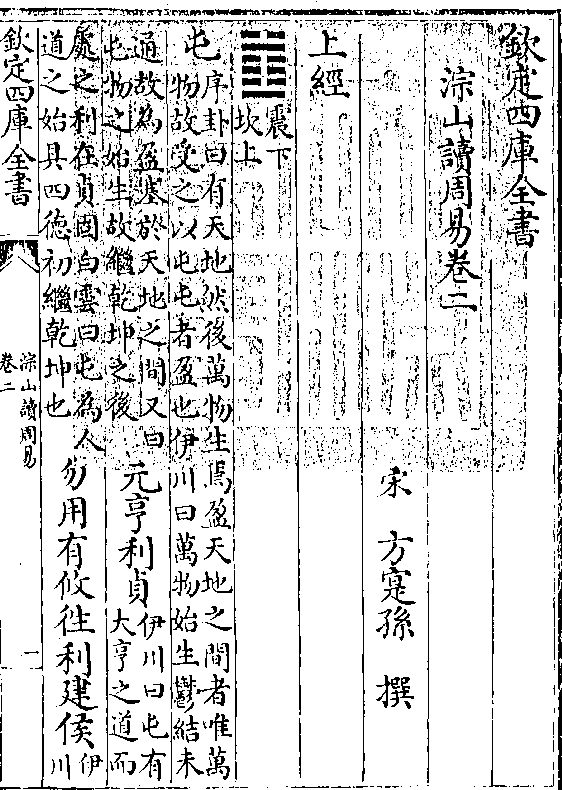 欽定四庫全書
淙山讀周易卷二
宋 方寔孫 撰
上經
䷂
震下
坎上
屯
序卦曰有天地然後萬物生焉盈天地之間者唯萬
物故受之以屯屯者盈也伊川曰萬物始生鬱結未
通故為盈塞於天地之間又曰
屯物之始生故繼乾坤之後
元亨利貞
伊川曰屯有
大亨之道而
處之利在貞固白雲曰屯為人
道之始具四德初繼乾坤也
勿用有攸往利建侯
伊
川
欽定四庫全書
淙山讀周易
卷二
一